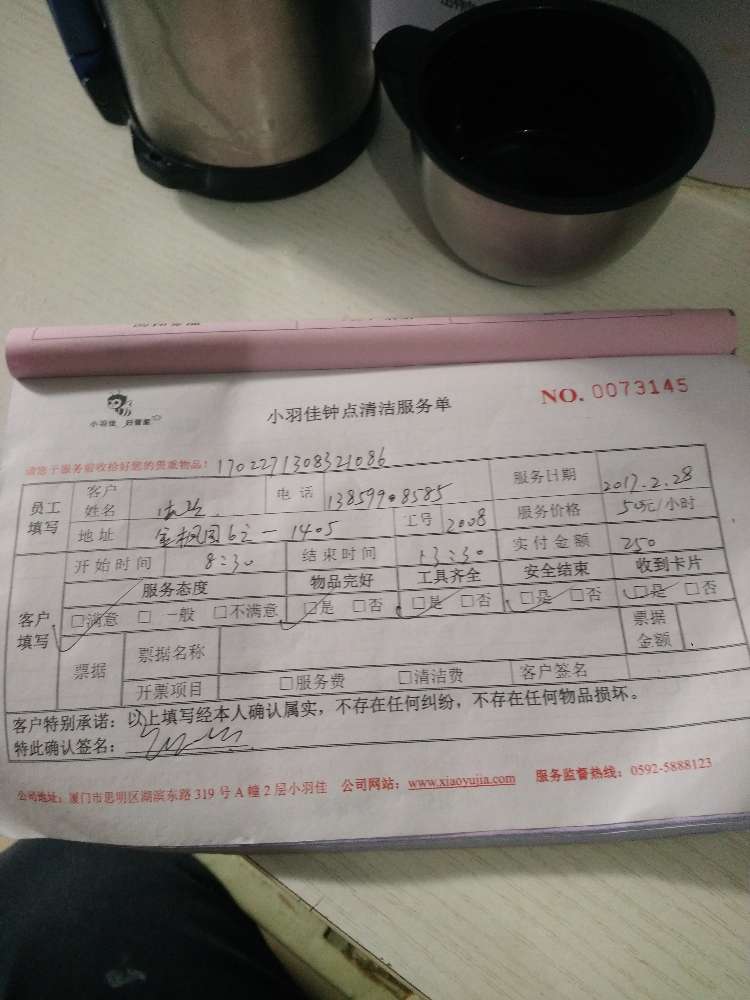 小羽佳 好管家
小羽佳钟点清洁服务单
NO. 0073145
请您于服务前收拾好您的贵重物品! 1702271308321086
员工填写 客户姓名 电话 服务日期 2017.2.28
地址 金枫园 1405 工号 2008 服务价格 50元/小时
客户填写 开始时间 8:30 结束时间 13:30 实付金额 250
服务态度 物品完好 工具齐全 安全结束 收到卡片
□满意 □一般 □不满意 □是 □否 □是 □否 □是 □否 □是 □否
票据 票据名称 票据金额
开票项目 □服务费 □清洁费 客户签名
客户特别承诺：以上填写经本人确认属实，不存在任何纠纷，不存在任何物品损坏。
特此确认签名：
公司地址：厦门市思明区湖滨东路 319 号 A 幢 2 层小羽佳 公司网站：www.xiaoyujia.com 服务监督热线：0592-5888123